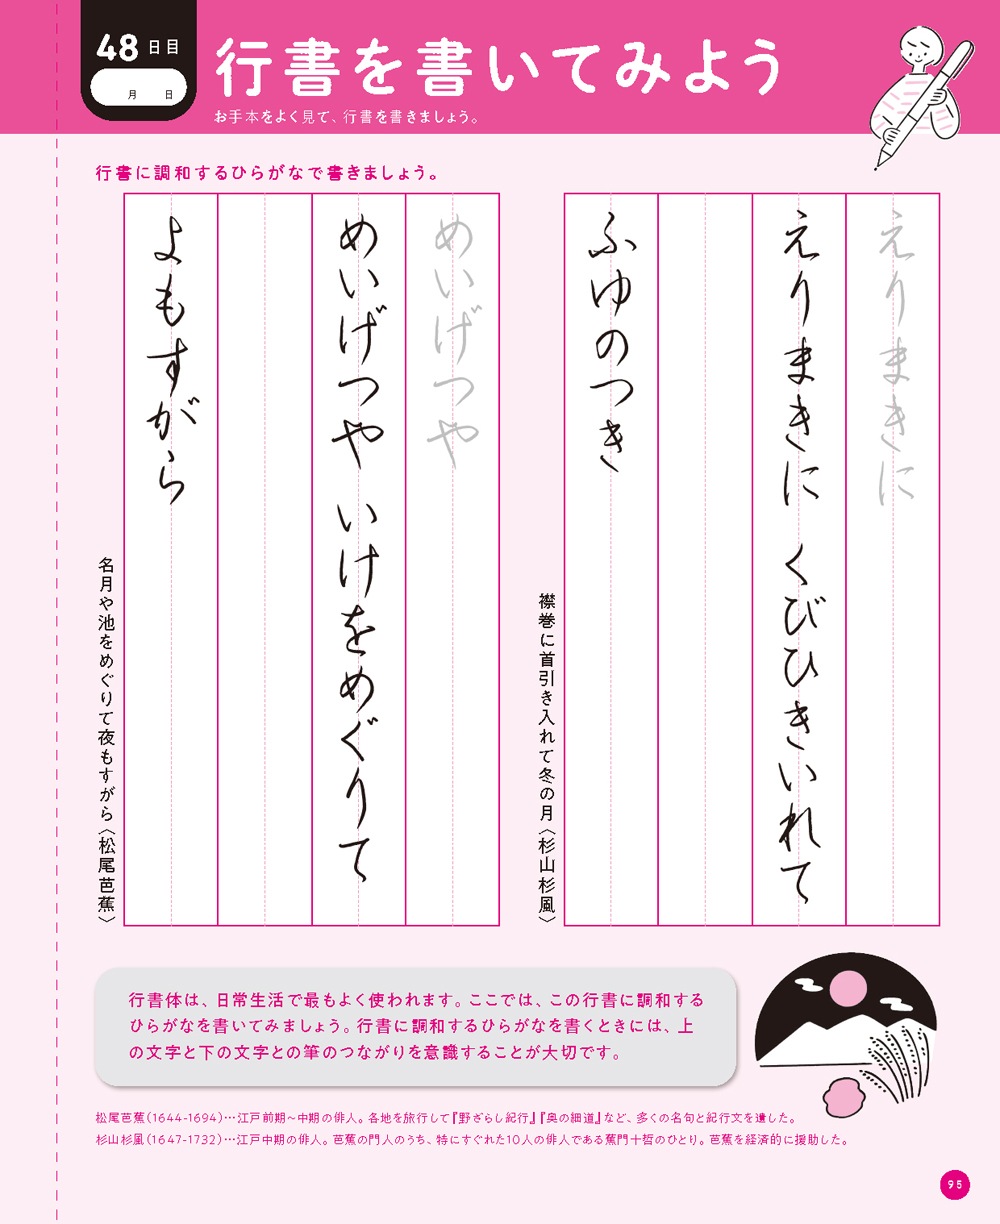 48日目
月 日
行書を書いてみよう
お手本をよく見て、行書を書きましょう。
行書に調和するひらがなで書きましょう。
えりまきに
えりまきに くびひきいれて
ふゆのつき
襟巻に首引き入れて冬の月〈杉山杉風〉
めいげつや
めいげつや いけをめぐりて
よもすがら
名月や池をめぐりて夜もすがら〈松尾芭蕉〉
行書体は、日常生活で最もよく使われます。ここでは、この行書に調和する
ひらがなを書いてみましょう。行書に調和するひらがなを書くときには、上
の文字と下の文字との筆のつながりを意識することが大切です。
松尾芭蕉(1644-1694)…江戸前期〜中期の俳人。各地を旅行して『野ざらし紀行』『奥の細道』など、多くの名句と紀行文を遺した。
杉山杉風(1647-1732)…江戸中期の俳人。芭蕉の門人のうち、特にすぐれた10人の俳人である蕉門十哲のひとり。芭蕉を経済的に援助した。
95